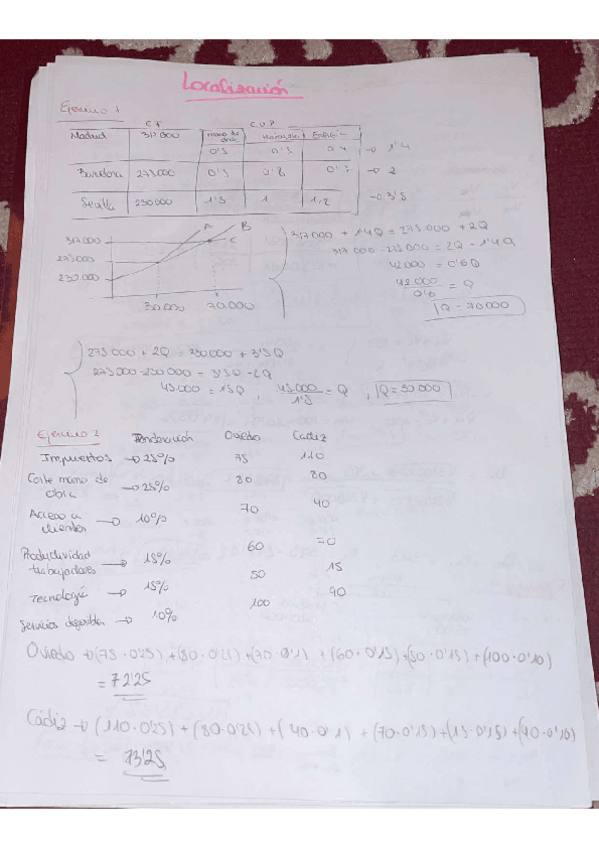 Localización
Ejercicio 1
C.F C.U.P
Madrid 317.000 mano de obra Energía
0'5 0'5 0'4 → 1'4
Barcelona 275.000 0'5 0'8 0'7 → 2
Sevilla 230.000 1'3 1 1,2 → 3'5
A B
317.000 C
275.000
230.000
30.000 70.000
317.000 + 1'4Q = 275.000 + 2Q
317.000 - 275.000 = 2Q - 1'4Q
42.000 = 0'6Q
42.000 / 0'6 = Q
Q = 70.000
275.000 + 2Q = 230.000 + 3'5Q
275.000 - 230.000 = 3'5Q - 2Q
45.000 = 1'5Q , 45.000 / 1'5 = Q , Q = 30.000
Ejercicio 2 Ponderación Oviedo Cadiz
Impuestos → 25% 75 110
Coste mano de obra → 25% 80 80
Acceso a clientes → 10% 70 40
Productividad trabajadores → 15% 60 70
Tecnología → 15% 50 15
Servicios disponibles → 10% 100 90
Oviedo → (75·0'25) + (80·0'25) + (70·0'1) + (60·0'15) + (50·0'15) + (100·0'10)
= 72'25
Cádiz → (110·0'25) + (80·0'25) + (40·0'1) + (70·0'15) + (15·0'15) + (90·0'10)
= 73'25